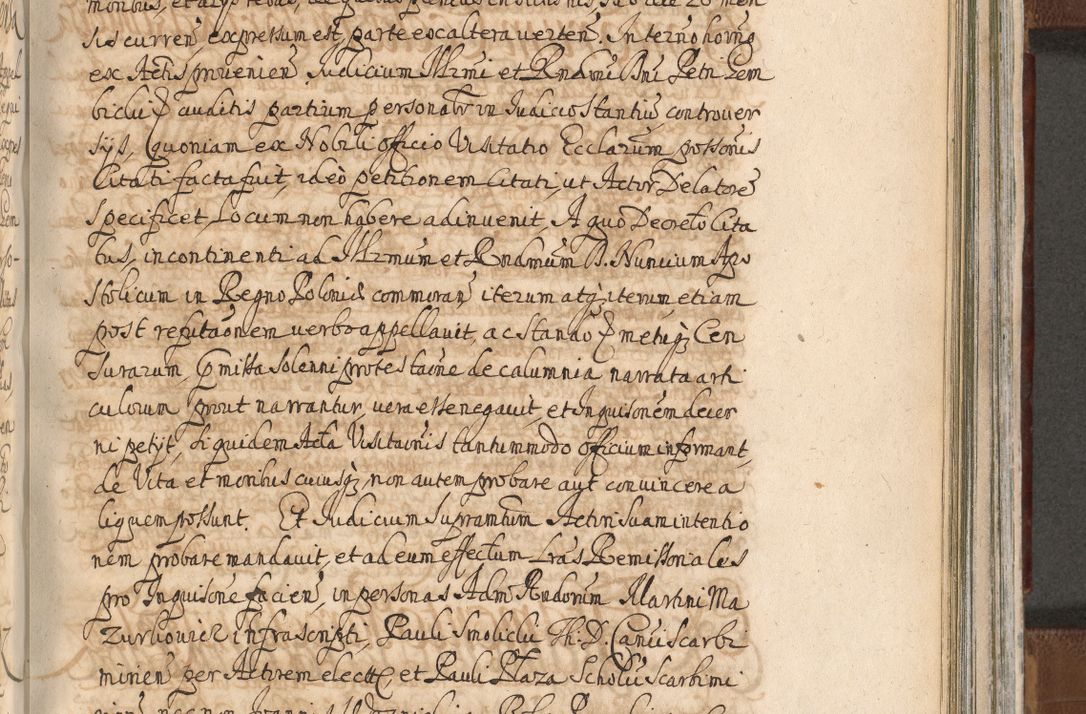 sis curren̄, expressum est, parte ex altera verten̄. In termo horno
ex Actis provenien̄ Judicium Illrmi et Rndmi Dni Petri Gem
biclii, auditis partium personalr in Judicio stantiū controver
sys, Quoniam ex Nobili officio Visitatio Ecclarum personis
Citati facta fuit, ideò petitionem Citati, ut Actor Delatorē
specificet, locum non habere adinvenit, A quo Decreto Cita
tus, incontinenti ad Illrmum et Rndmum D. Nuncium Apo
stolicum in Regno Poloniæ commoran̄ iterum atq̢ iterum etiam
post refutaonem verbo appellavit, ac stando p metuq̢ Cen
surarum, præmissa solenni protestaōne de calumnia narrata arti
culorum prout narrantur, vera esse negavit, et Inquisonem decer
ni petyt, siquidem Acta Visitaonis tantummodo officium informant,
de Vita et moribus cuiusq̢, non autem probare aut convincere a
liquem possunt. Et Judicium Supramtum Actori suam intentio
nem probare mandavit, et ad eum effectum Lras Remissoriales
pro Inquisone facien̄, in personas Adm Rndorum Martini Ma
zurkowicz infrascripti, Pauli Smoliclii Th: D. Canci Scarbi
mirien̄ per Actorem elect et Pauli Płaza Scholci Scarbimi